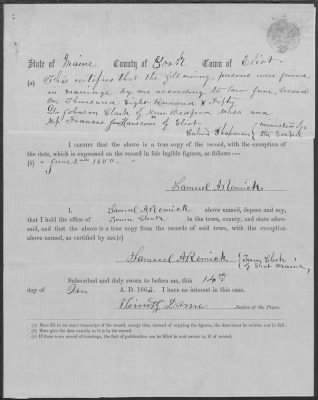 State of Maine County of York Town of Eliot
(a) This certifies that the following persons were joined
in marriage by me according to law June Second
One Thousand Eight Hundred & Fifty
Dr Johnson Clark of New Bedford Mass and
Mrs Frances of Eliot
Chapman { minister of the Gospel
I certify that the above is a true copy of the record, with the exception of
the date, which is expressed on the record in fair legible figures, as follows:—
(b) " June 2nd 1850 "
Samuel A Remick
I, Samuel A Remick above named, depose and say,
that I hold the office of Town Clerk in the town, county, and state afore-
said, and that the above is a true copy from the records of said town, with the exception
above named, as certified by me.(c)
Samuel A Remick { Town Clerk of Eliot Maine
Subscribed and duly sworn to before me, this 14th
day of A. D. 1862. I have no interest in this case.
Timothy Dame Justice of the Peace.
(a) Here fill in an exact transcript of the record, except that, instead of copying the figures, the date must be written out in full.
(b) Here give the date exactly as it is in the record.
(c) If there is no record of marriage, the fact of publication can be filled in and sworn to, if of record.